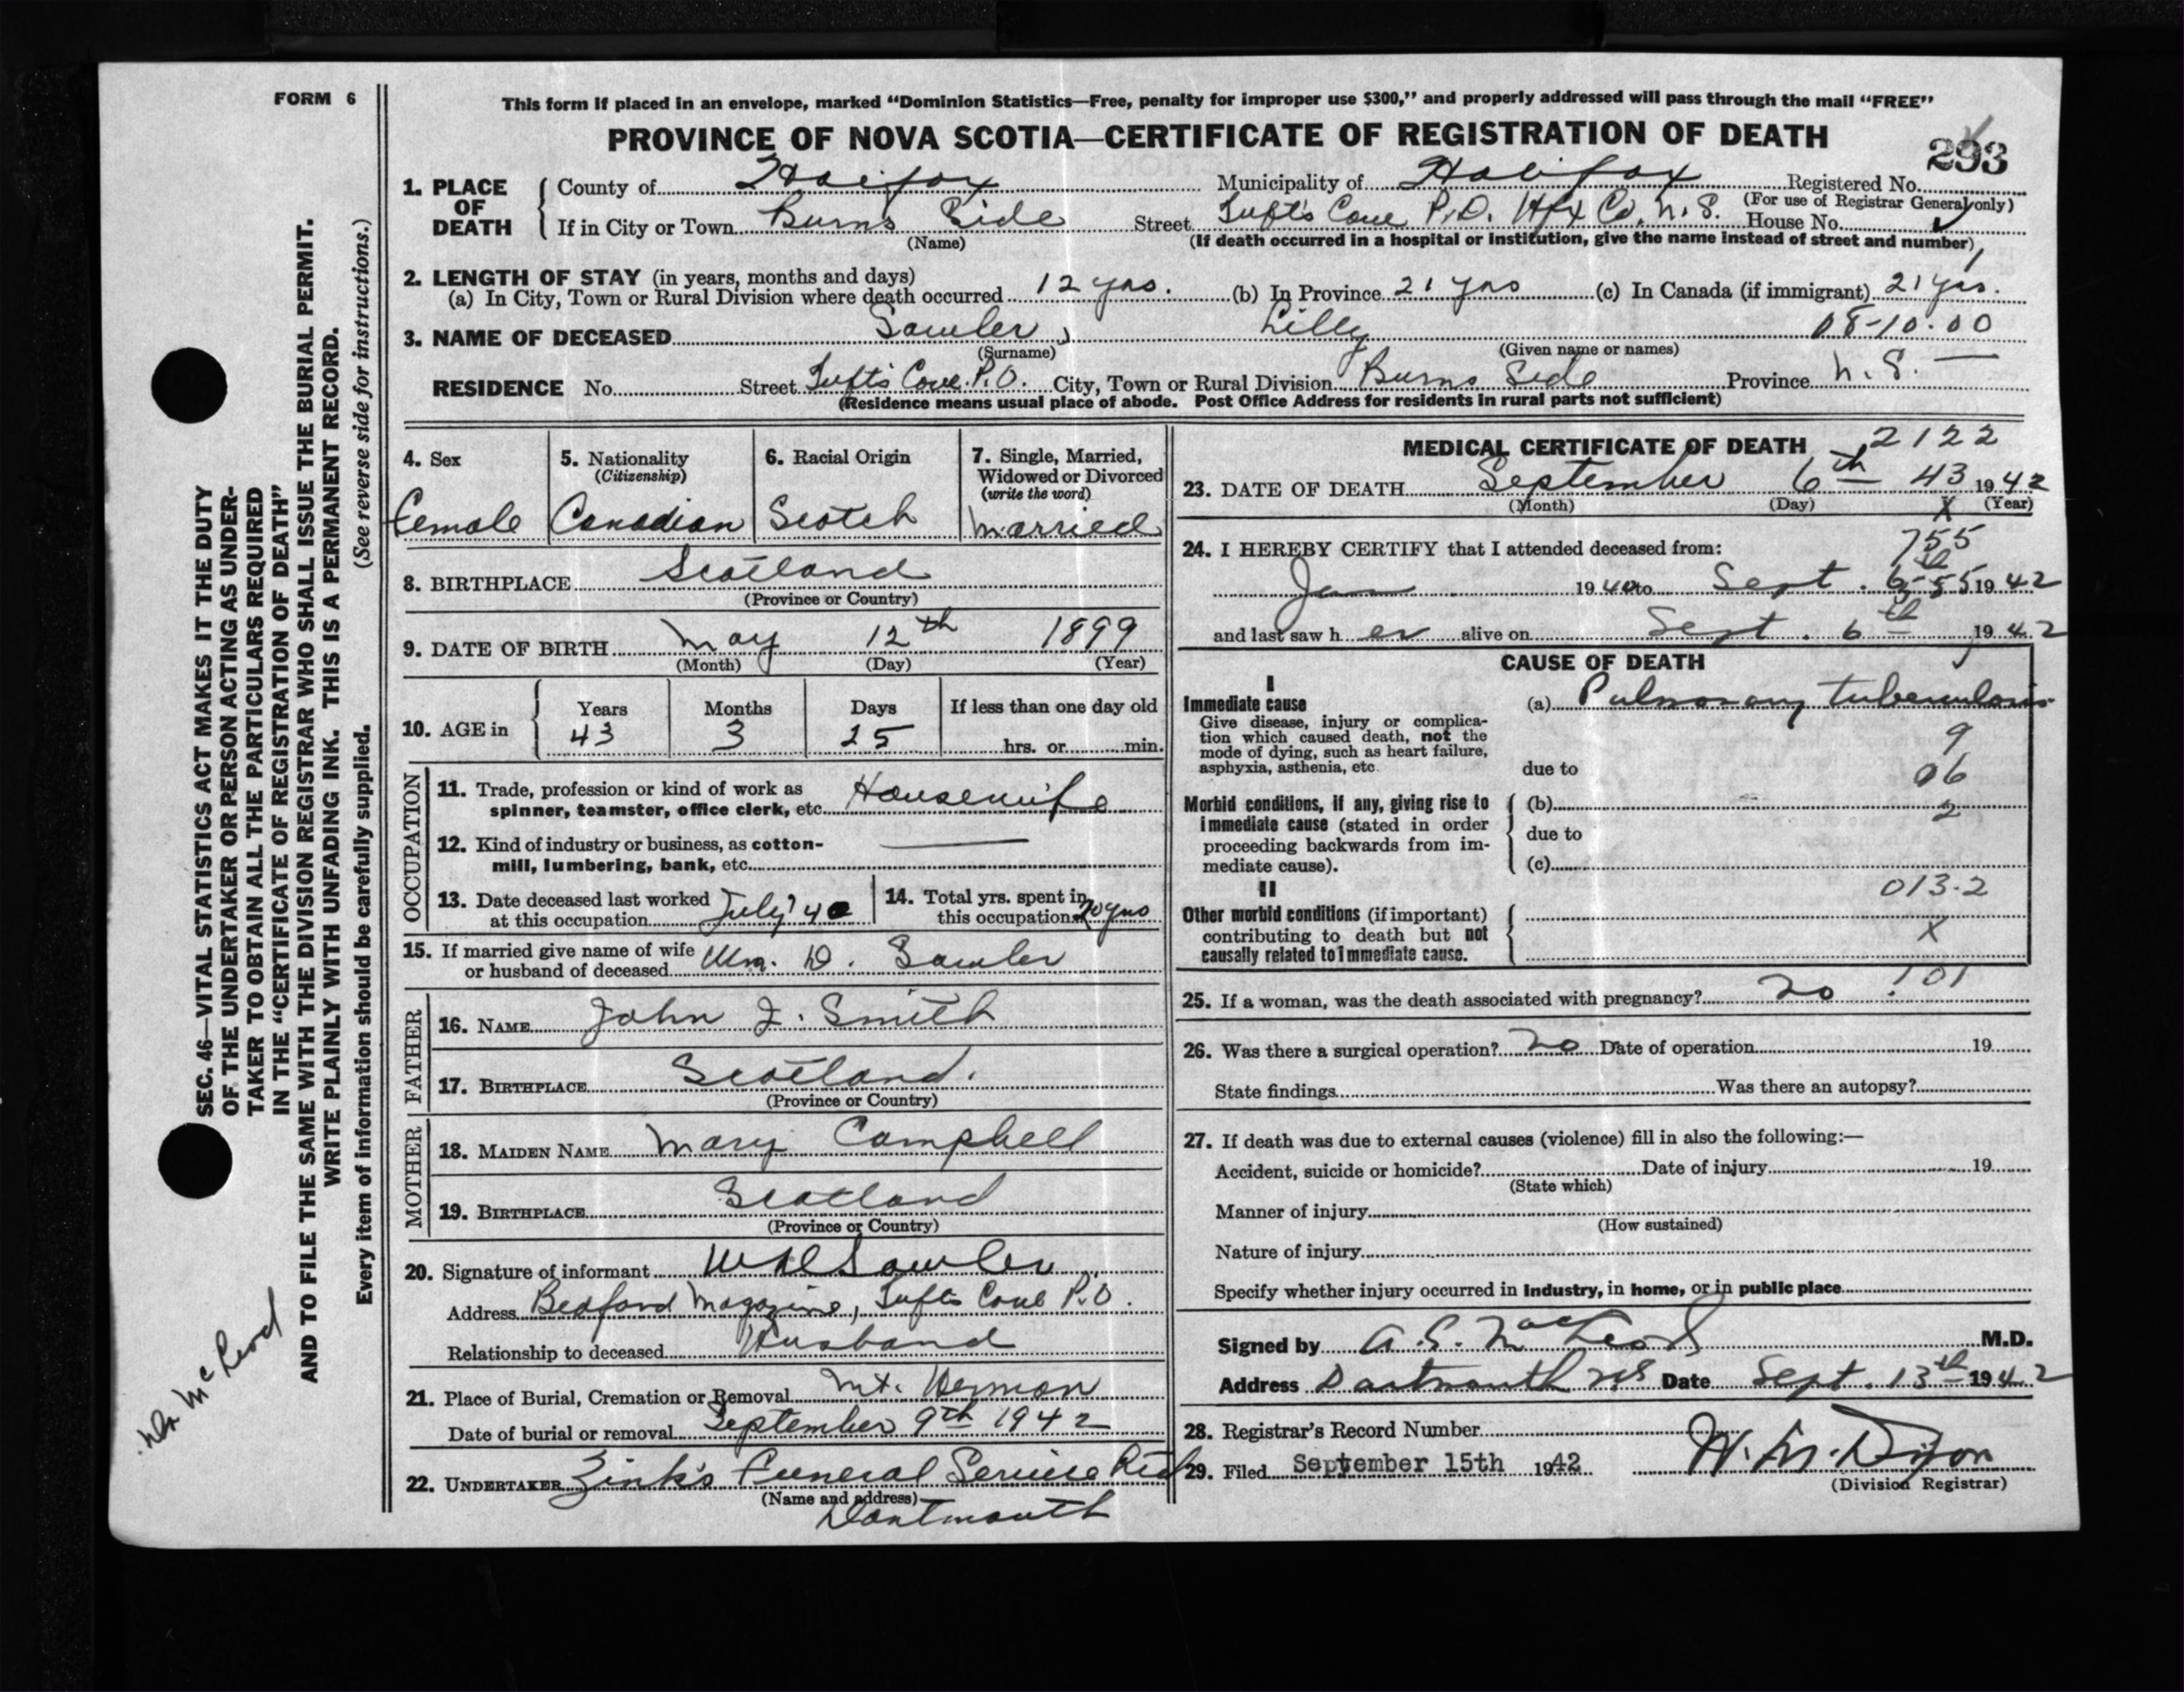 FORM 6
This form if placed in an envelope, marked "Dominion Statistics—Free, penalty for improper use $300," and properly addressed will pass through the mail "FREE"
PROVINCE OF NOVA SCOTIA—CERTIFICATE OF REGISTRATION OF DEATH
293
1. PLACE OF DEATH
County of Halifax Municipality of Halifax Registered No.
(For use of Registrar General only)
If in City or Town Burns Side Street Tuft's Cove P.O. Hfx Co. N.S. House No.
(Name) (If death occurred in a hospital or institution, give the name instead of street and number)
2. LENGTH OF STAY (in years, months and days)
(a) In City, Town or Rural Division where death occurred 12 yrs. (b) In Province 21 yrs (c) In Canada (if immigrant) 21 yrs.
3. NAME OF DECEASED Sawler, Lilly 08-10-00
(Surname) (Given name or names)
RESIDENCE No. Street Tufts Cove P.O. City, Town or Rural Division Burns Side Province N.S.
(Residence means usual place of abode. Post Office Address for residents in rural parts not sufficient)
4. Sex
Female
5. Nationality
(Citizenship)
Canadian
6. Racial Origin
Scotch
7. Single, Married, Widowed or Divorced
(write the word)
Married
8. BIRTHPLACE Scotland
(Province or Country)
9. DATE OF BIRTH May 12th 1899
(Month) (Day) (Year)
10. AGE in Years Months Days If less than one day old
43 3 25 hrs. or min.
OCCUPATION
11. Trade, profession or kind of work as
spinner, teamster, office clerk, etc. Housewife
12. Kind of industry or business, as cotton-
mill, lumbering, bank, etc. —
13. Date deceased last worked
at this occupation July '40
14. Total yrs. spent in
this occupation 20 yrs
15. If married give name of wife
or husband of deceased Wm. D. Sawler
FATHER
16. NAME John J. Smith
17. BIRTHPLACE Scotland.
(Province or Country)
MOTHER
18. MAIDEN NAME Mary Campbell
19. BIRTHPLACE Scotland
(Province or Country)
20. Signature of informant Sawler
Address Bedford Magazine, Tufts Cove P.O.
Relationship to deceased Husband
21. Place of Burial, Cremation or Removal Mt. Hermon
Date of burial or removal September 9th 1942
22. UNDERTAKER Zink's Funeral Service Ltd
(Name and address)
Dartmouth
MEDICAL CERTIFICATE OF DEATH 2122
23. DATE OF DEATH September 6th 43 1942
(Month) (Day) X (Year)
24. I HEREBY CERTIFY that I attended deceased from: 755
Jan 1940 to Sept. 6th 1942
and last saw her alive on Sept. 6th 1942
CAUSE OF DEATH
I
Immediate cause
Give disease, injury or complica-
tion which caused death, not the
mode of dying, such as heart failure,
asphyxia, asthenia, etc.
(a) Pulmonary tuberculosis
9
due to
06
Morbid conditions, if any, giving rise to
immediate cause (stated in order
proceeding backwards from im-
mediate cause).
(b)
2
due to
(c)
II
013.2
Other morbid conditions (if important)
contributing to death but not
causally related to immediate cause.
X
25. If a woman, was the death associated with pregnancy? no 101
26. Was there a surgical operation? no Date of operation 19
State findings Was there an autopsy?
27. If death was due to external causes (violence) fill in also the following:—
Accident, suicide or homicide? Date of injury 19
(State which)
Manner of injury
(How sustained)
Nature of injury
Specify whether injury occurred in Industry, in home, or in public place
Signed by A. G. MacLeod M.D.
Address Dartmouth NS Date Sept. 13th 1942
28. Registrar's Record Number
29. Filed September 15th 1942 W. M. Dixon
(Division Registrar)
SEC. 46—VITAL STATISTICS ACT MAKES IT THE DUTY
OF THE UNDERTAKER OR PERSON ACTING AS UNDER-
TAKER TO OBTAIN ALL THE PARTICULARS REQUIRED
IN THE "CERTIFICATE OF REGISTRATION OF DEATH"
AND TO FILE THE SAME WITH THE DIVISION REGISTRAR WHO SHALL ISSUE THE BURIAL PERMIT.
WRITE PLAINLY WITH UNFADING INK. THIS IS A PERMANENT RECORD.
Every item of information should be carefully supplied. (See reverse side for instructions.)
Dr McLeod